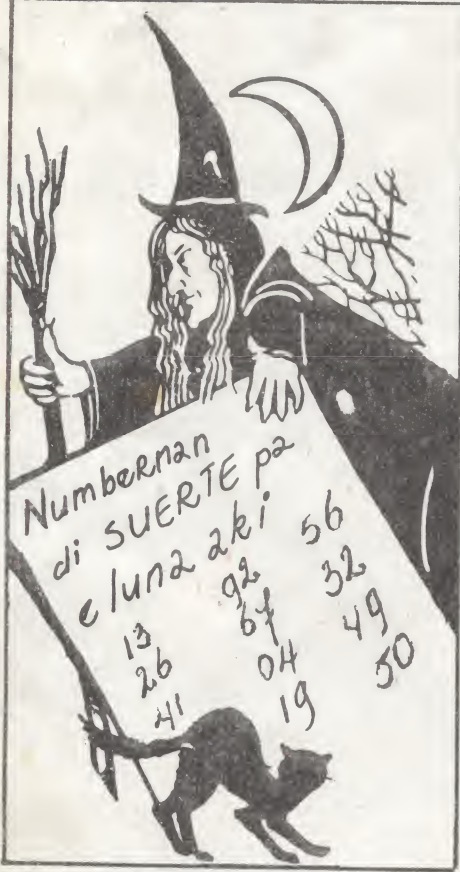 Numbernan
di SUERTE pa
e luna aki
13 92 56
26 67 32
41 04 49
19 50